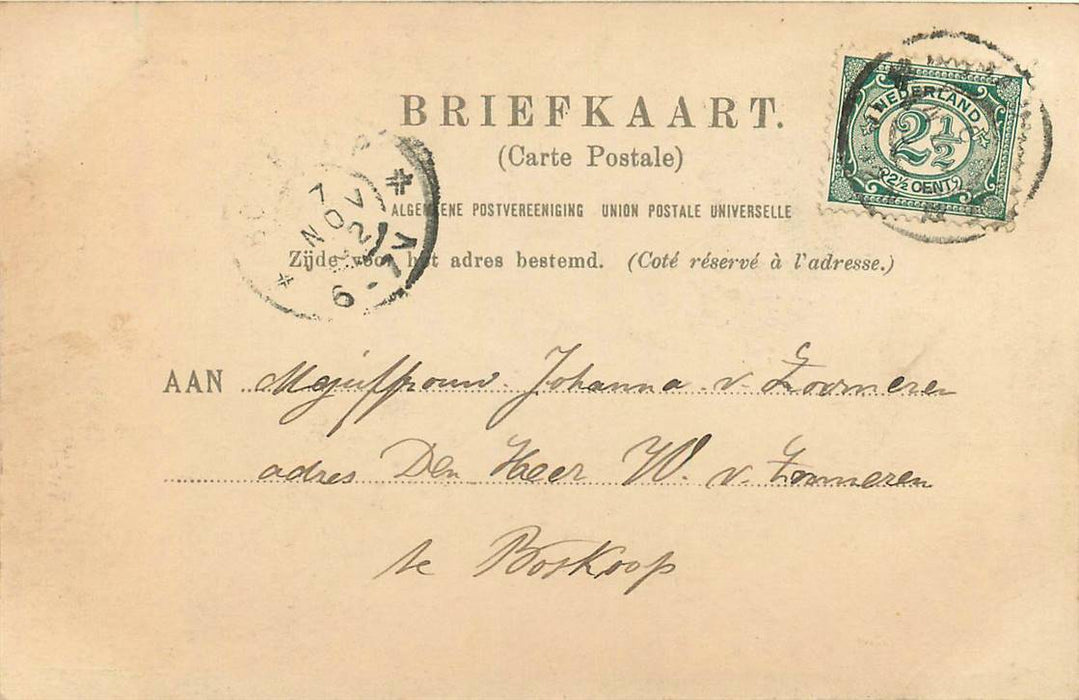 BRIEFKAART.
(Carte Postale)
ALGEMEENE POSTVEREENIGING UNION POSTALE UNIVERSELLE
Zijde voor het adres bestemd. (Coté réservé à l'adresse.)
NEDERLAND
2½
2½ CENT
7
NOV
6-7V
AAN Mejuffrouw Johanna v. Zoomeren
adres Den Heer W. v. Zomeren
te Boskoop